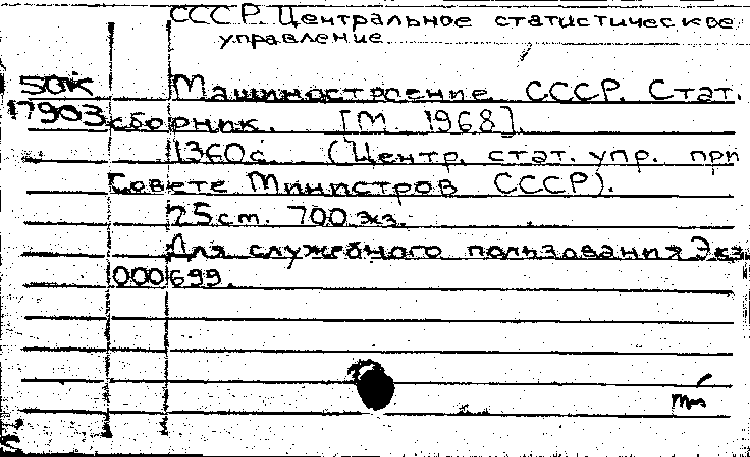 СССР. Центральное статистическое
управление
50К Машиностроение СССР. Стат.
17903 сборник. [М. 1968].
1360с. (Центр. стат. упр. при
Совете Министров СССР).
25см. 700 экз.
Для служебного пользования Экз
000699.